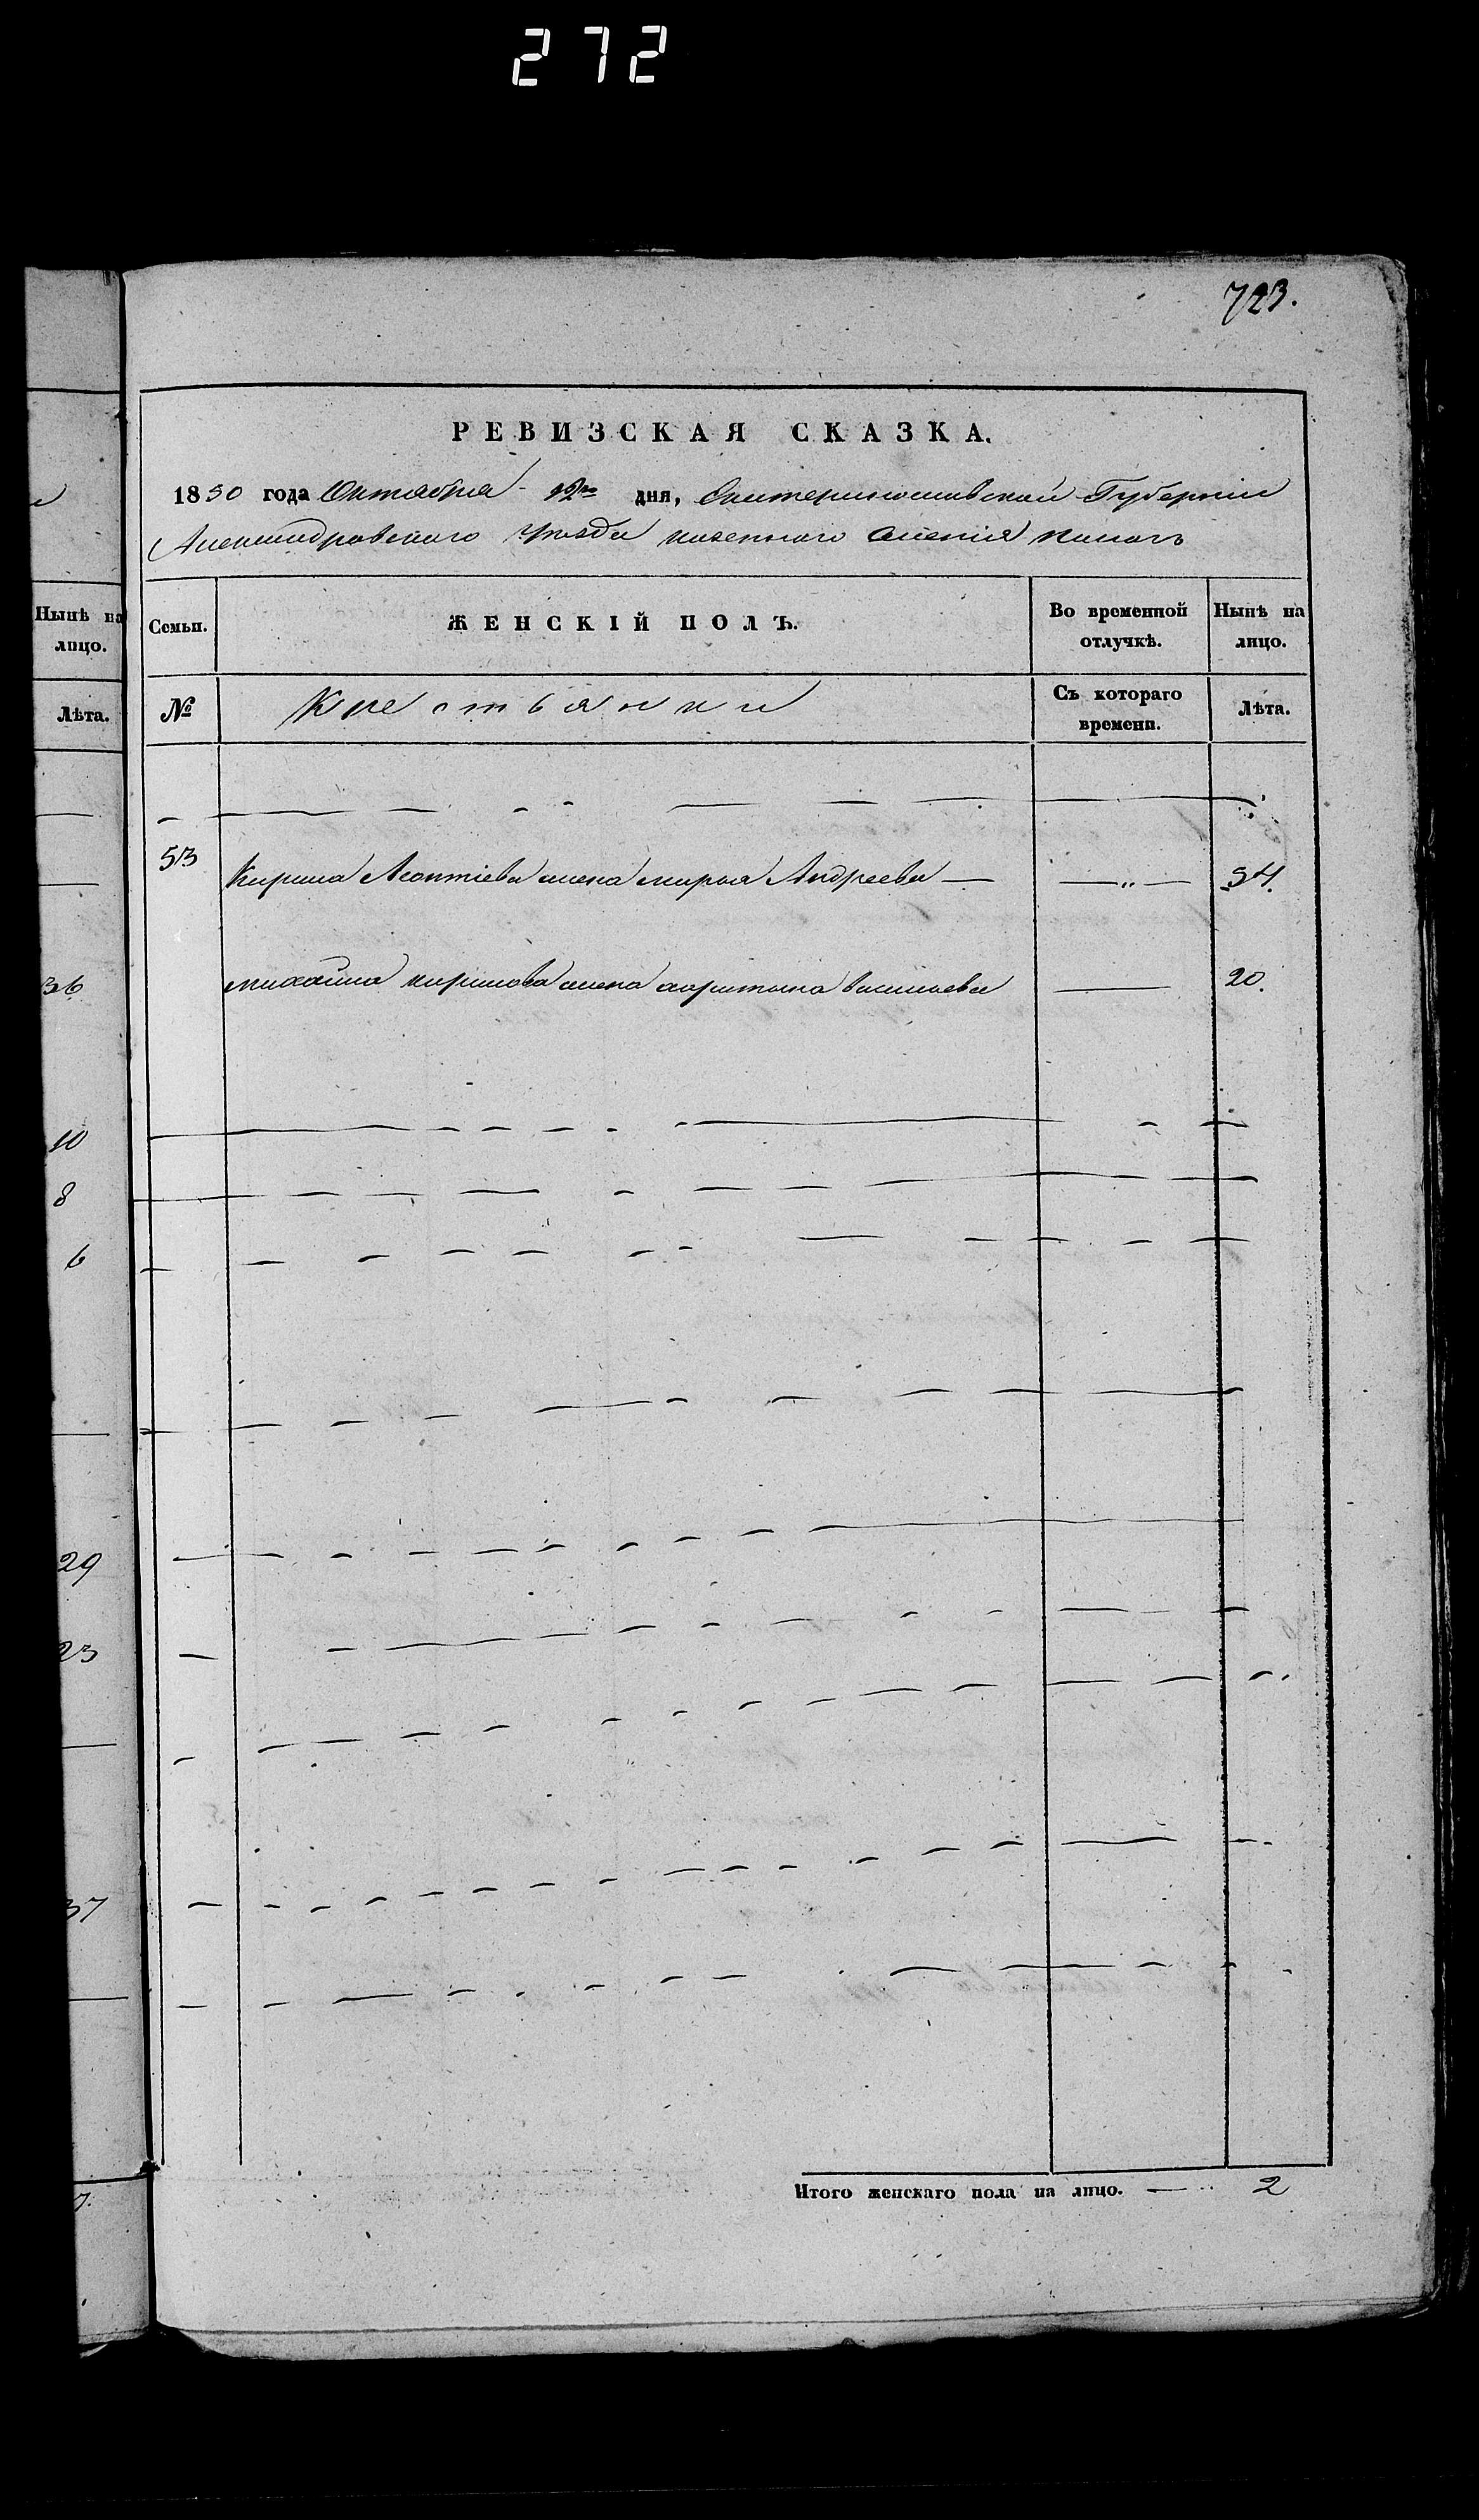 272
723.
РЕВИЗСКАЯ СКАЗКА.
1850 года Октября 12го дня, Екатеринославской Губернии
Александровского Уезда казенного селения
Нынѣ на лицо.
Семьи.
ЖЕНСКІЙ ПОЛЪ.
Во временной отлучкѣ.
Нынѣ на лицо.
Лѣта.
№
Крестьянки
Съ котораго времени.
Лѣта.
53
Кирила Леонтіева жена марья Андреева — —„— 54.
михайла кирилова жена харитына васильева — 20.
36
10
8
6
29
23
37
7.
Итого женскаго пола на лицо. — 2